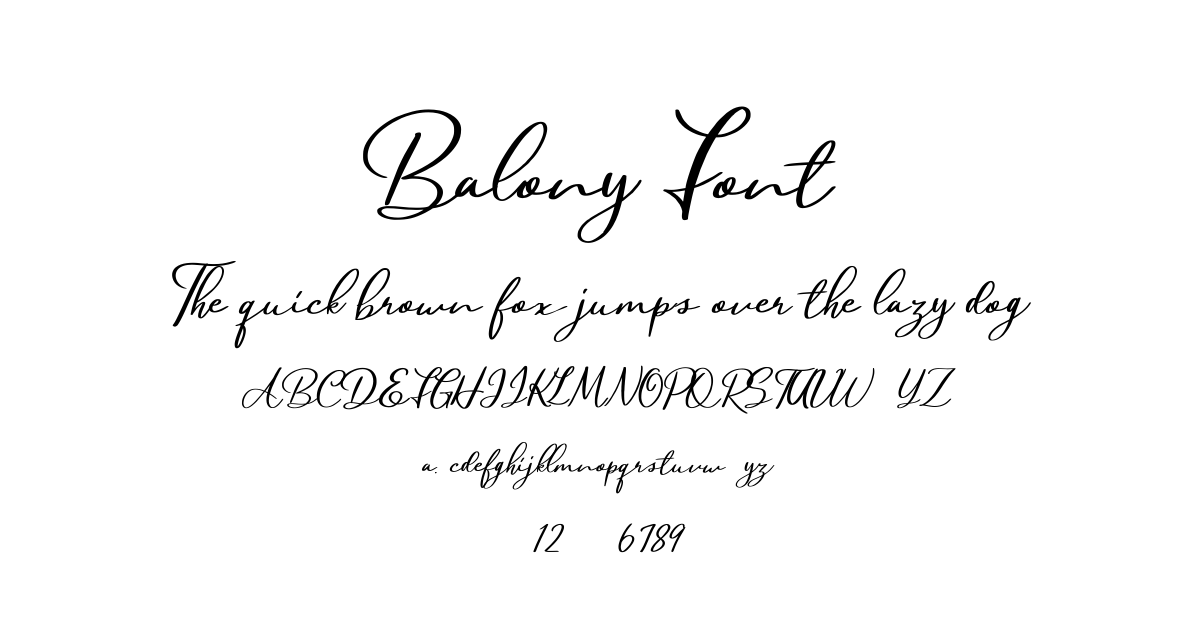 Balony Font
The quick brown fox jumps over the lazy dog
ABCDEFGHIJKLMNOPQRSTUVW YZ
a. cdefghijklmnopqrstuvw yz
12 6789